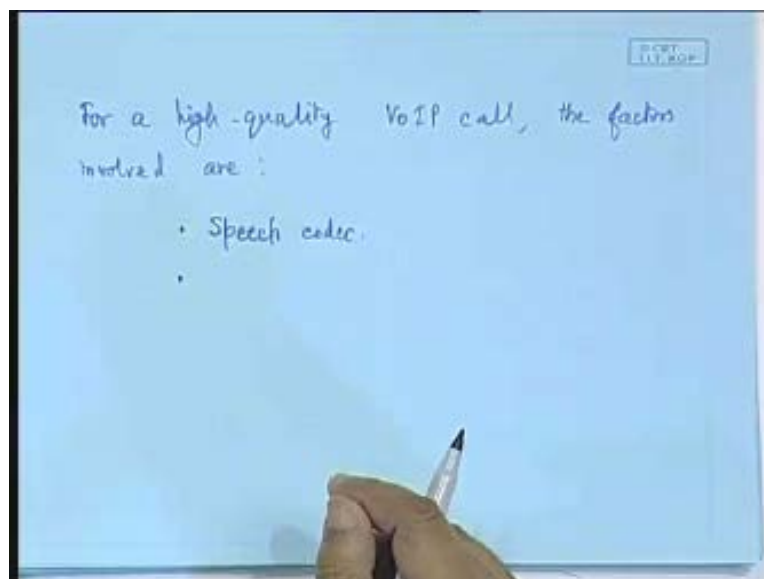 For a high-quality VoIP call, the factors
involved are :
• Speech codec.
•